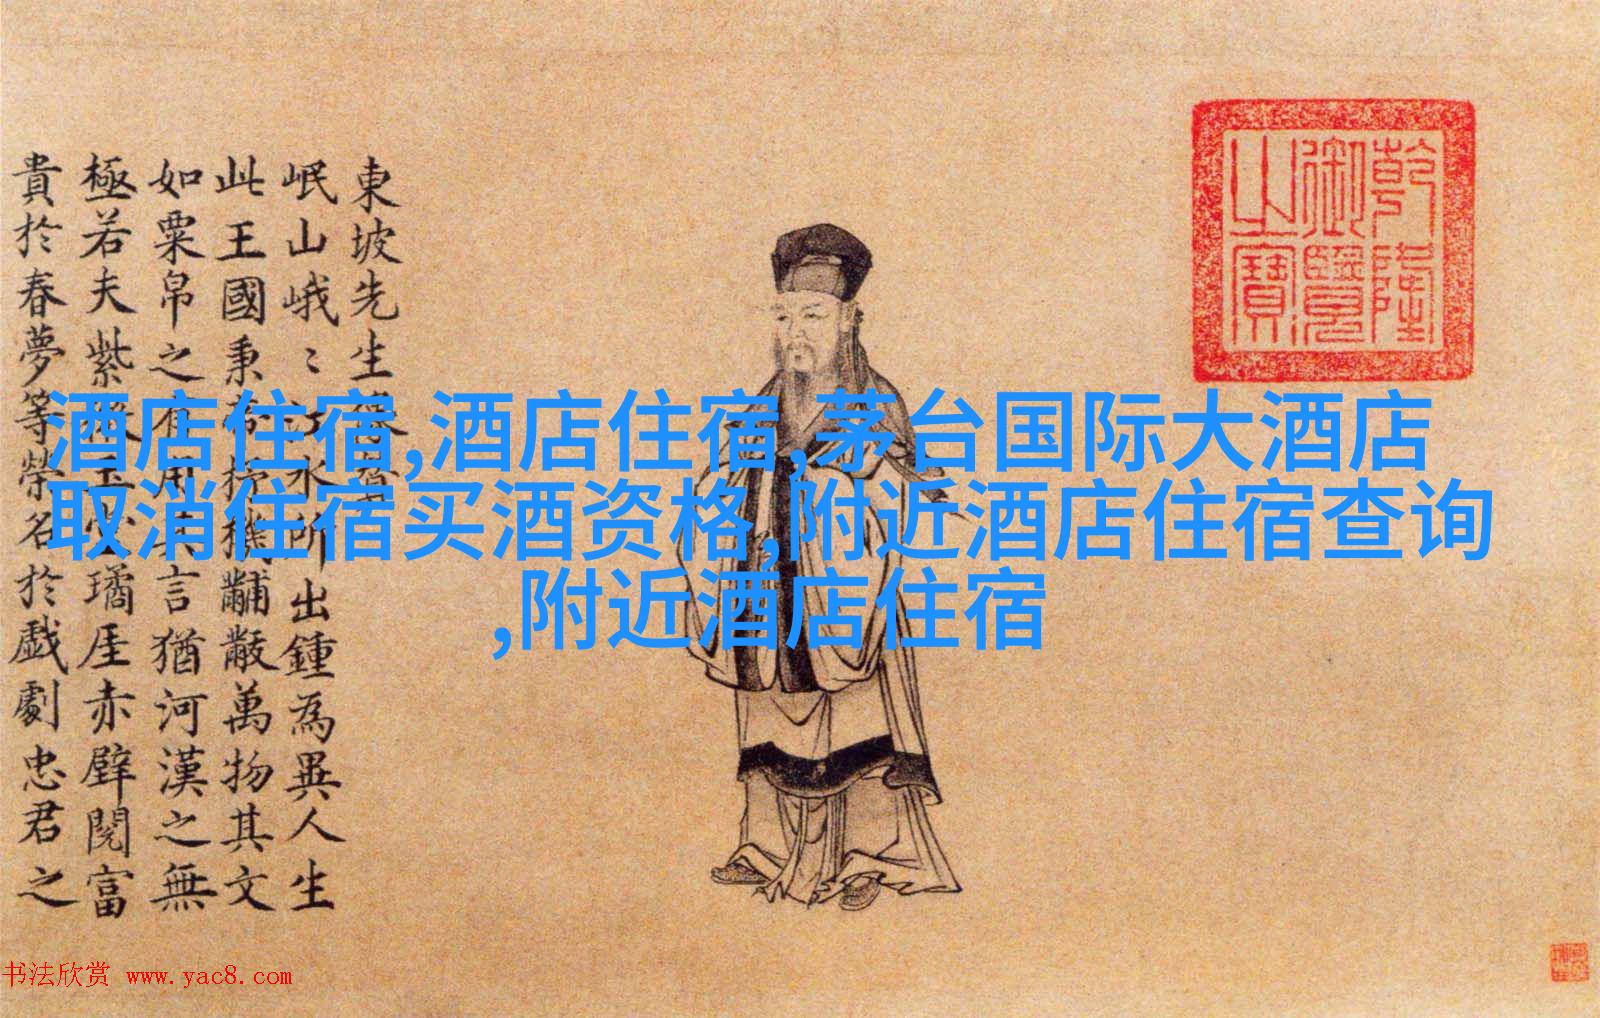 東坡先生
岷山峨〻江水所出鍾為異人生
此王國秉黼黻萬物其文
如粟帛之有用其言猶河漢之無
極若夫紫玉堂璚厓赤壁閱富
貴於春夢等榮名於戲劇忠君之
乾隆
御覽
之寶
酒店住宿,酒店住宿,茅台国际大酒店
取消住宿买酒资格,附近酒店住宿查询
,附近酒店住宿
书法欣赏 www.yac8.com